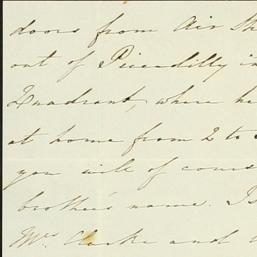 doors from Air St
out of Piccadilly in
Quadrant, where he
at home from 2 to
you will of course
brother's name. I
Mrs Clarke and